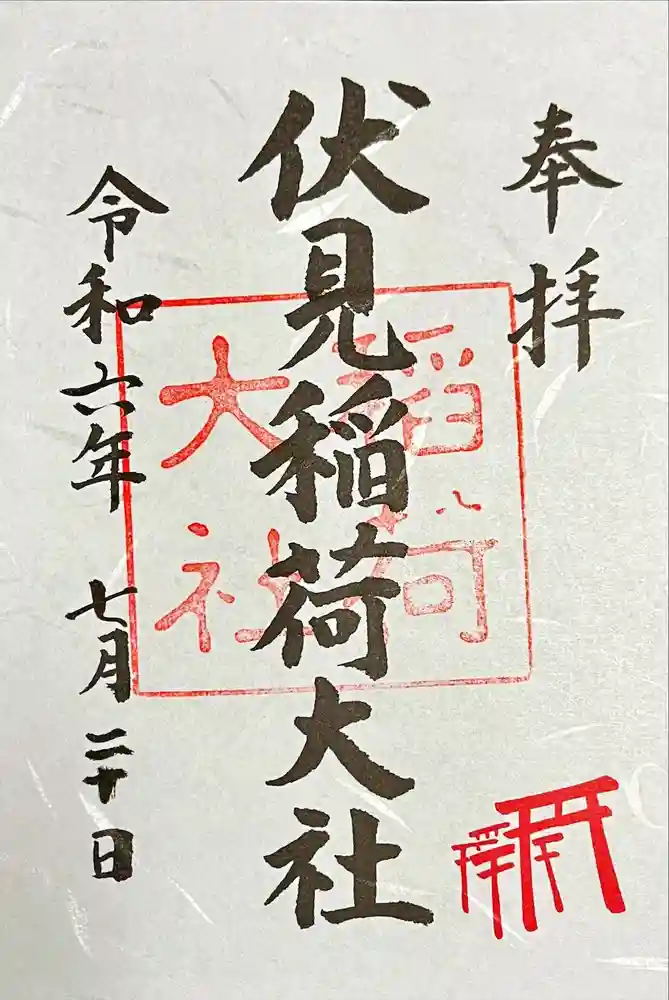 奉拝
伏見稲荷大社
稲荷
大社
令和六年 七月二十日